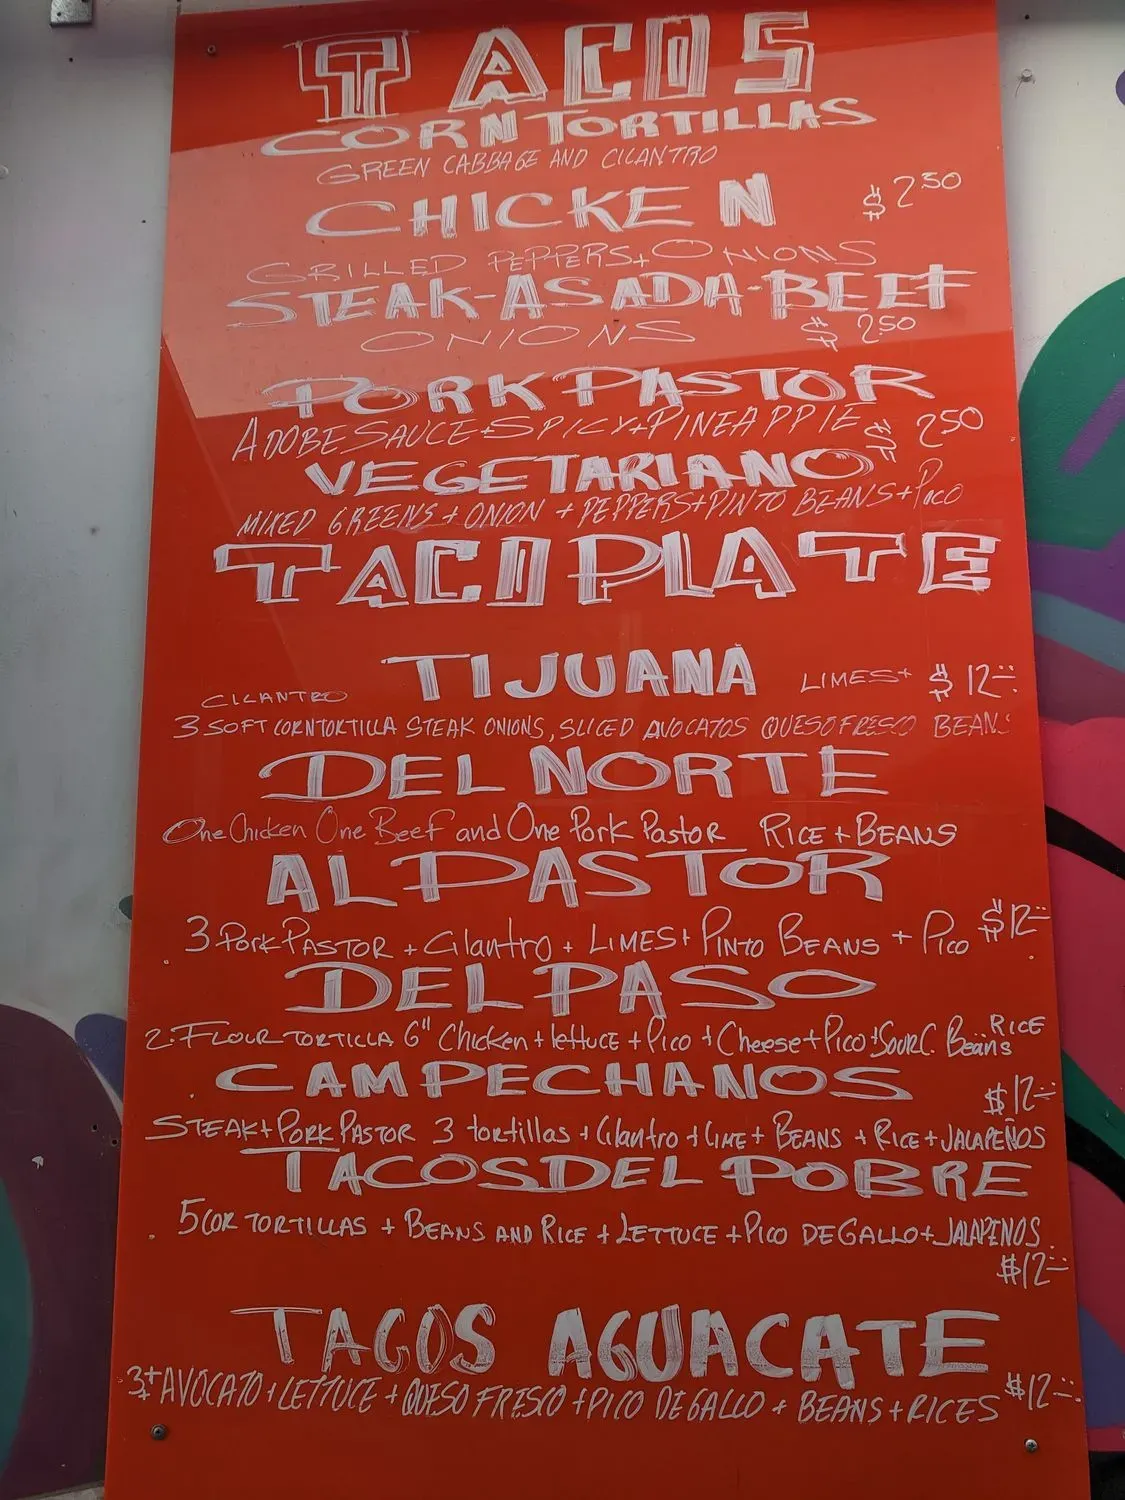 TACOS
CORN TORTILLAS
GREEN CABBAGE AND CILANTRO
CHICKEN $2.50
GRILLED PEPPERS + ONIONS
STEAK-ASADA-BEEF
ONIONS $2.50
PORK PASTOR
ADOBE SAUCE + SPICY + PINEAPPLE $2.50
VEGETARIANO
MIXED GREENS + ONION + PEPPERS + PINTO BEANS + PICO
TACO PLATE
TIJUANA
CILANTRO LIMES + $12
3 SOFT CORN TORTILLA STEAK ONIONS, SLICED AVOCATOS QUESO FRESCO BEANS
DEL NORTE
One Chicken One Beef and One Pork Pastor RICE + BEANS
AL PASTOR
3 PORK PASTOR + Cilantro + LIMES + PINTO BEANS + PICO $12
DEL PASO
2. FLOUR TORTILLA 6" Chicken + lettuce + Pico + Cheese + Pico + Sour C. Beans RICE
CAMPECHANOS $12
STEAK + PORK PASTOR 3 tortillas + Cilantro + LIME + BEANS + RICE + JALAPEÑOS
TACOS DEL POBRE
5 COR TORTILLAS + BEANS AND RICE + LETTUCE + PICO DE GALLO + JALAPENOS
$12
TACOS AGUACATE
3 + AVOCATO + LETTUCE + QUESO FRESCO + PICO DE GALLO + BEANS + RICES $12